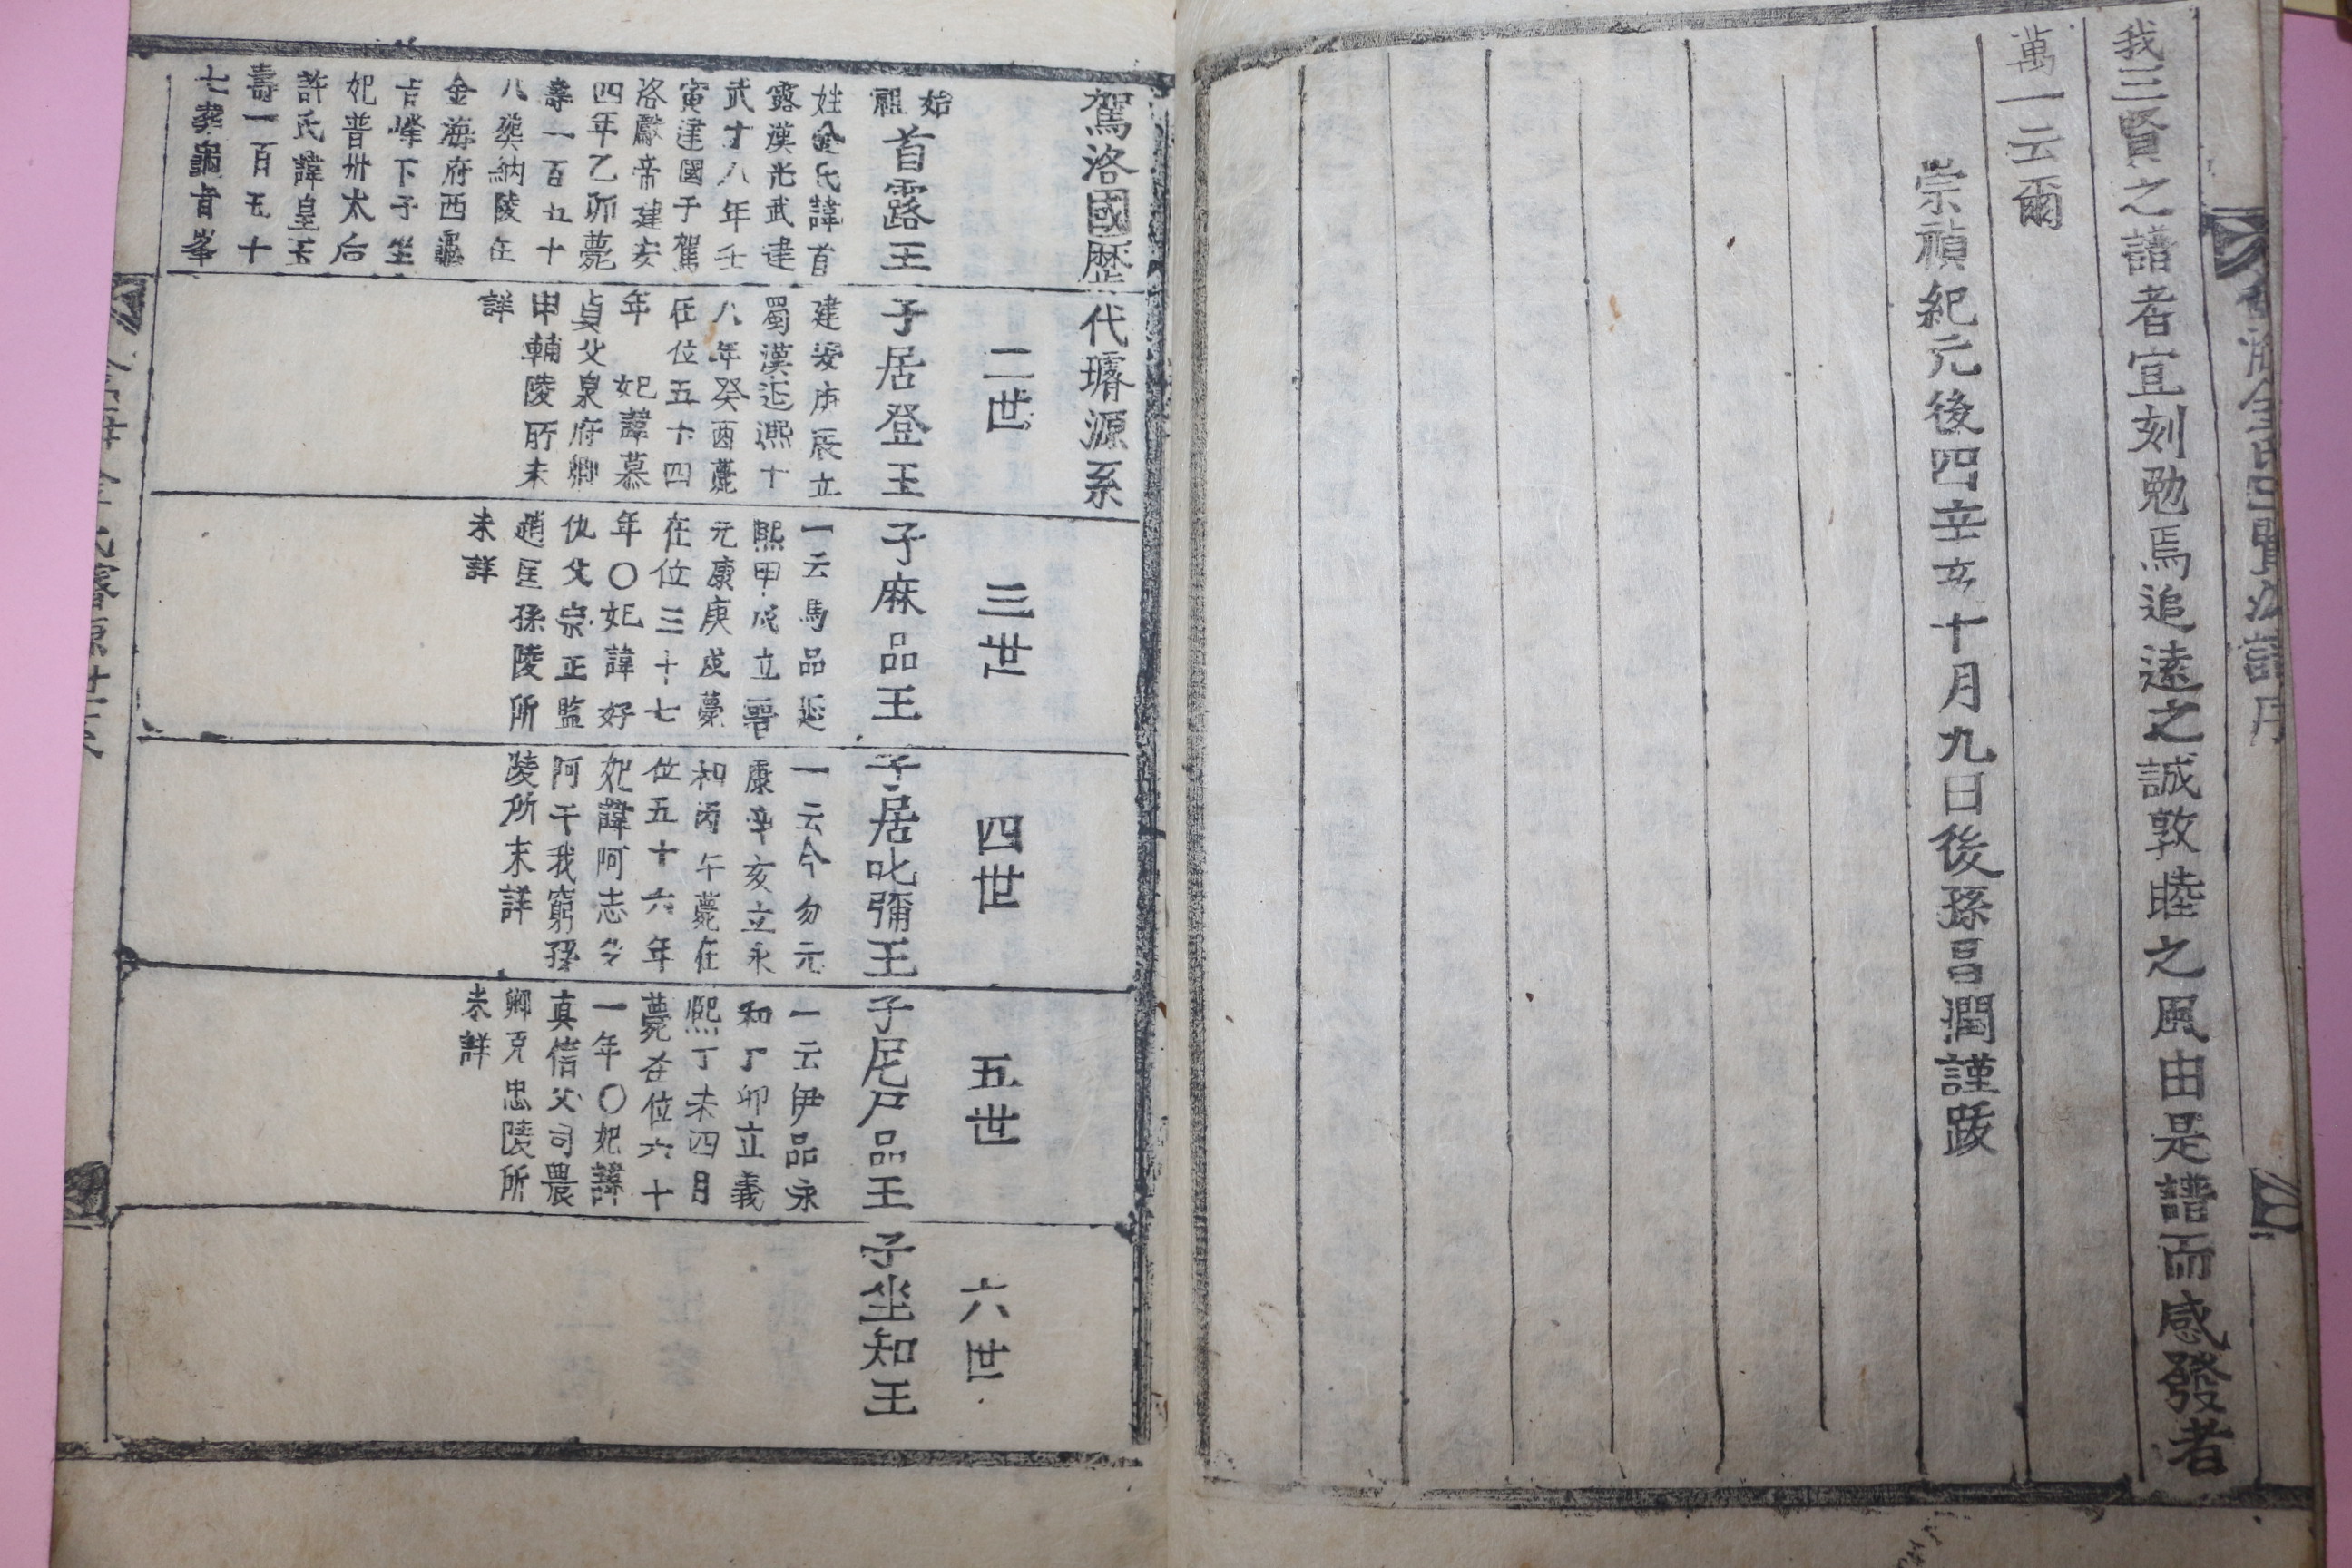 我三賢之譜者宜刻勉焉追遠之誠敦睦之風由是譜而感發者
萬一云爾
崇禎紀元後四辛亥十月九日後孫昌潤謹跋
駕洛國歷代璿源系
始祖
首露王
姓金氏諱首
露漢光武建
武十八年壬
寅建國于駕
洛獻帝建安
四年乙卯薨
壽一百五十
八葬納陵在
金海府西龜
旨峰下子坐
妃普州太后
許氏諱皇玉
壽一百五十
七葬龜旨峯
二世
子居登王
建安庚辰立
蜀漢延熙十
八年癸酉薨
在位五十四
年 妃諱慕
貞父泉府卿
申輔陵所未
詳
三世
子麻品王
一云馬品延
熙甲戌立晉
元康庚戌薨
在位三十七
年〇妃諱好
仇父宗正監
趙匡孫陵所
未詳
四世
子居叱彌王
一云今勿元
康辛亥立永
和丙午薨在
位五十六年
妃諱阿志父
阿干我窮孫
陵所未詳
五世
子尼尸品王
一云伊品永
和丁卯立義
熙丁未四月
薨在位六十
一年〇妃諱
真信父司農
卿克忠陵所
未詳
六世
子坐知王